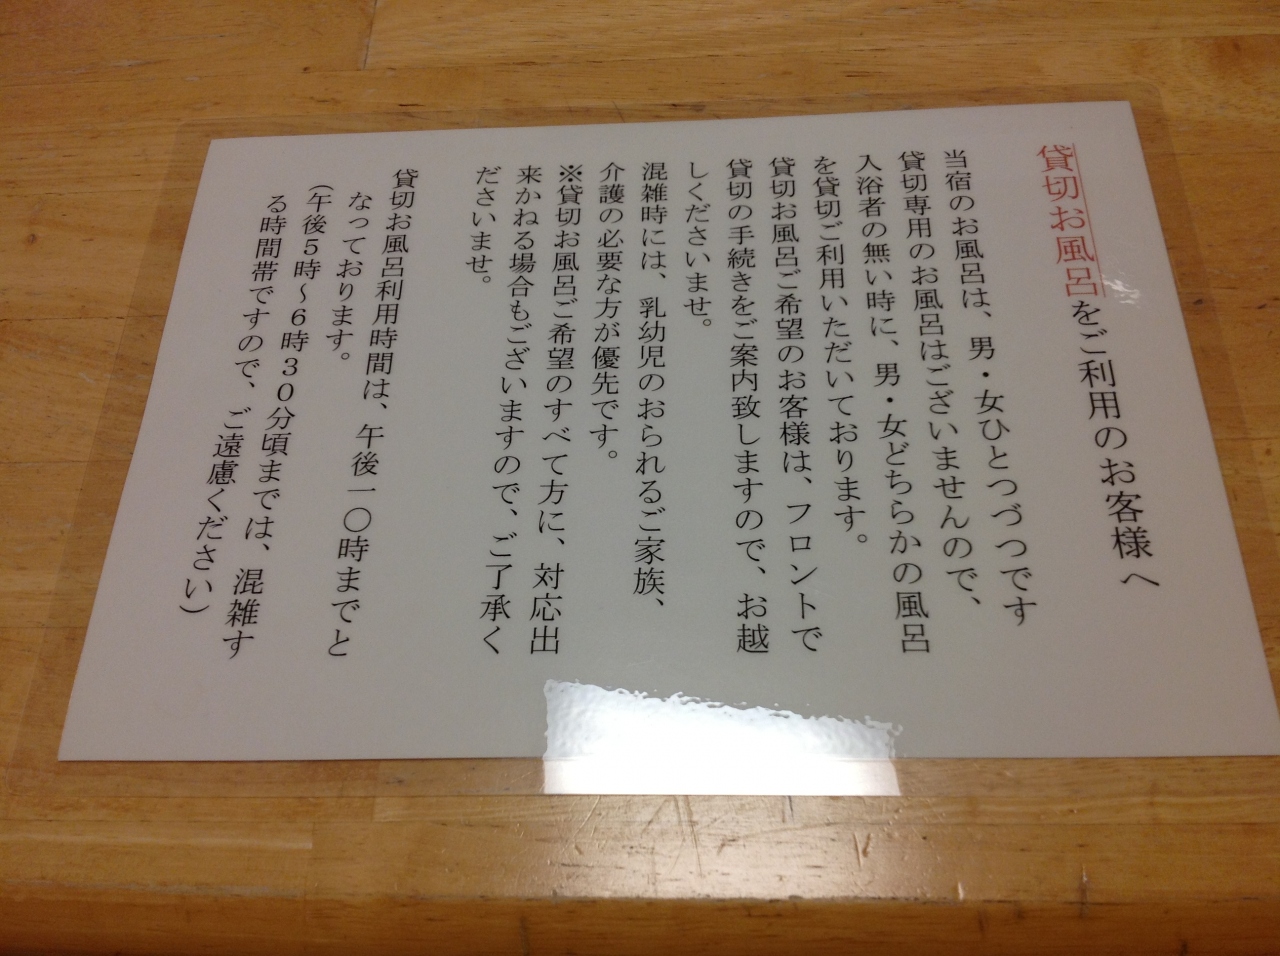 貸切お風呂をご利用のお客様へ
当宿のお風呂は、男・女ひとつづつです
貸切専用のお風呂はございませんので、
入浴者の無い時に、男・女どちらかの風呂
を貸切ご利用いただいております。
貸切お風呂ご希望のお客様は、フロントで
貸切の手続きをご案内致しますので、お越
しくださいませ。
混雑時には、乳幼児のおられるご家族、
介護の必要な方が優先です。
※貸切お風呂ご希望のすべて方に、対応出
来かねる場合もございますので、ご了承く
ださいませ。
貸切お風呂利用時間は、午後一〇時までと
なっております。
（午後５時～６時３０分頃までは、混雑す
る時間帯ですので、ご遠慮ください）